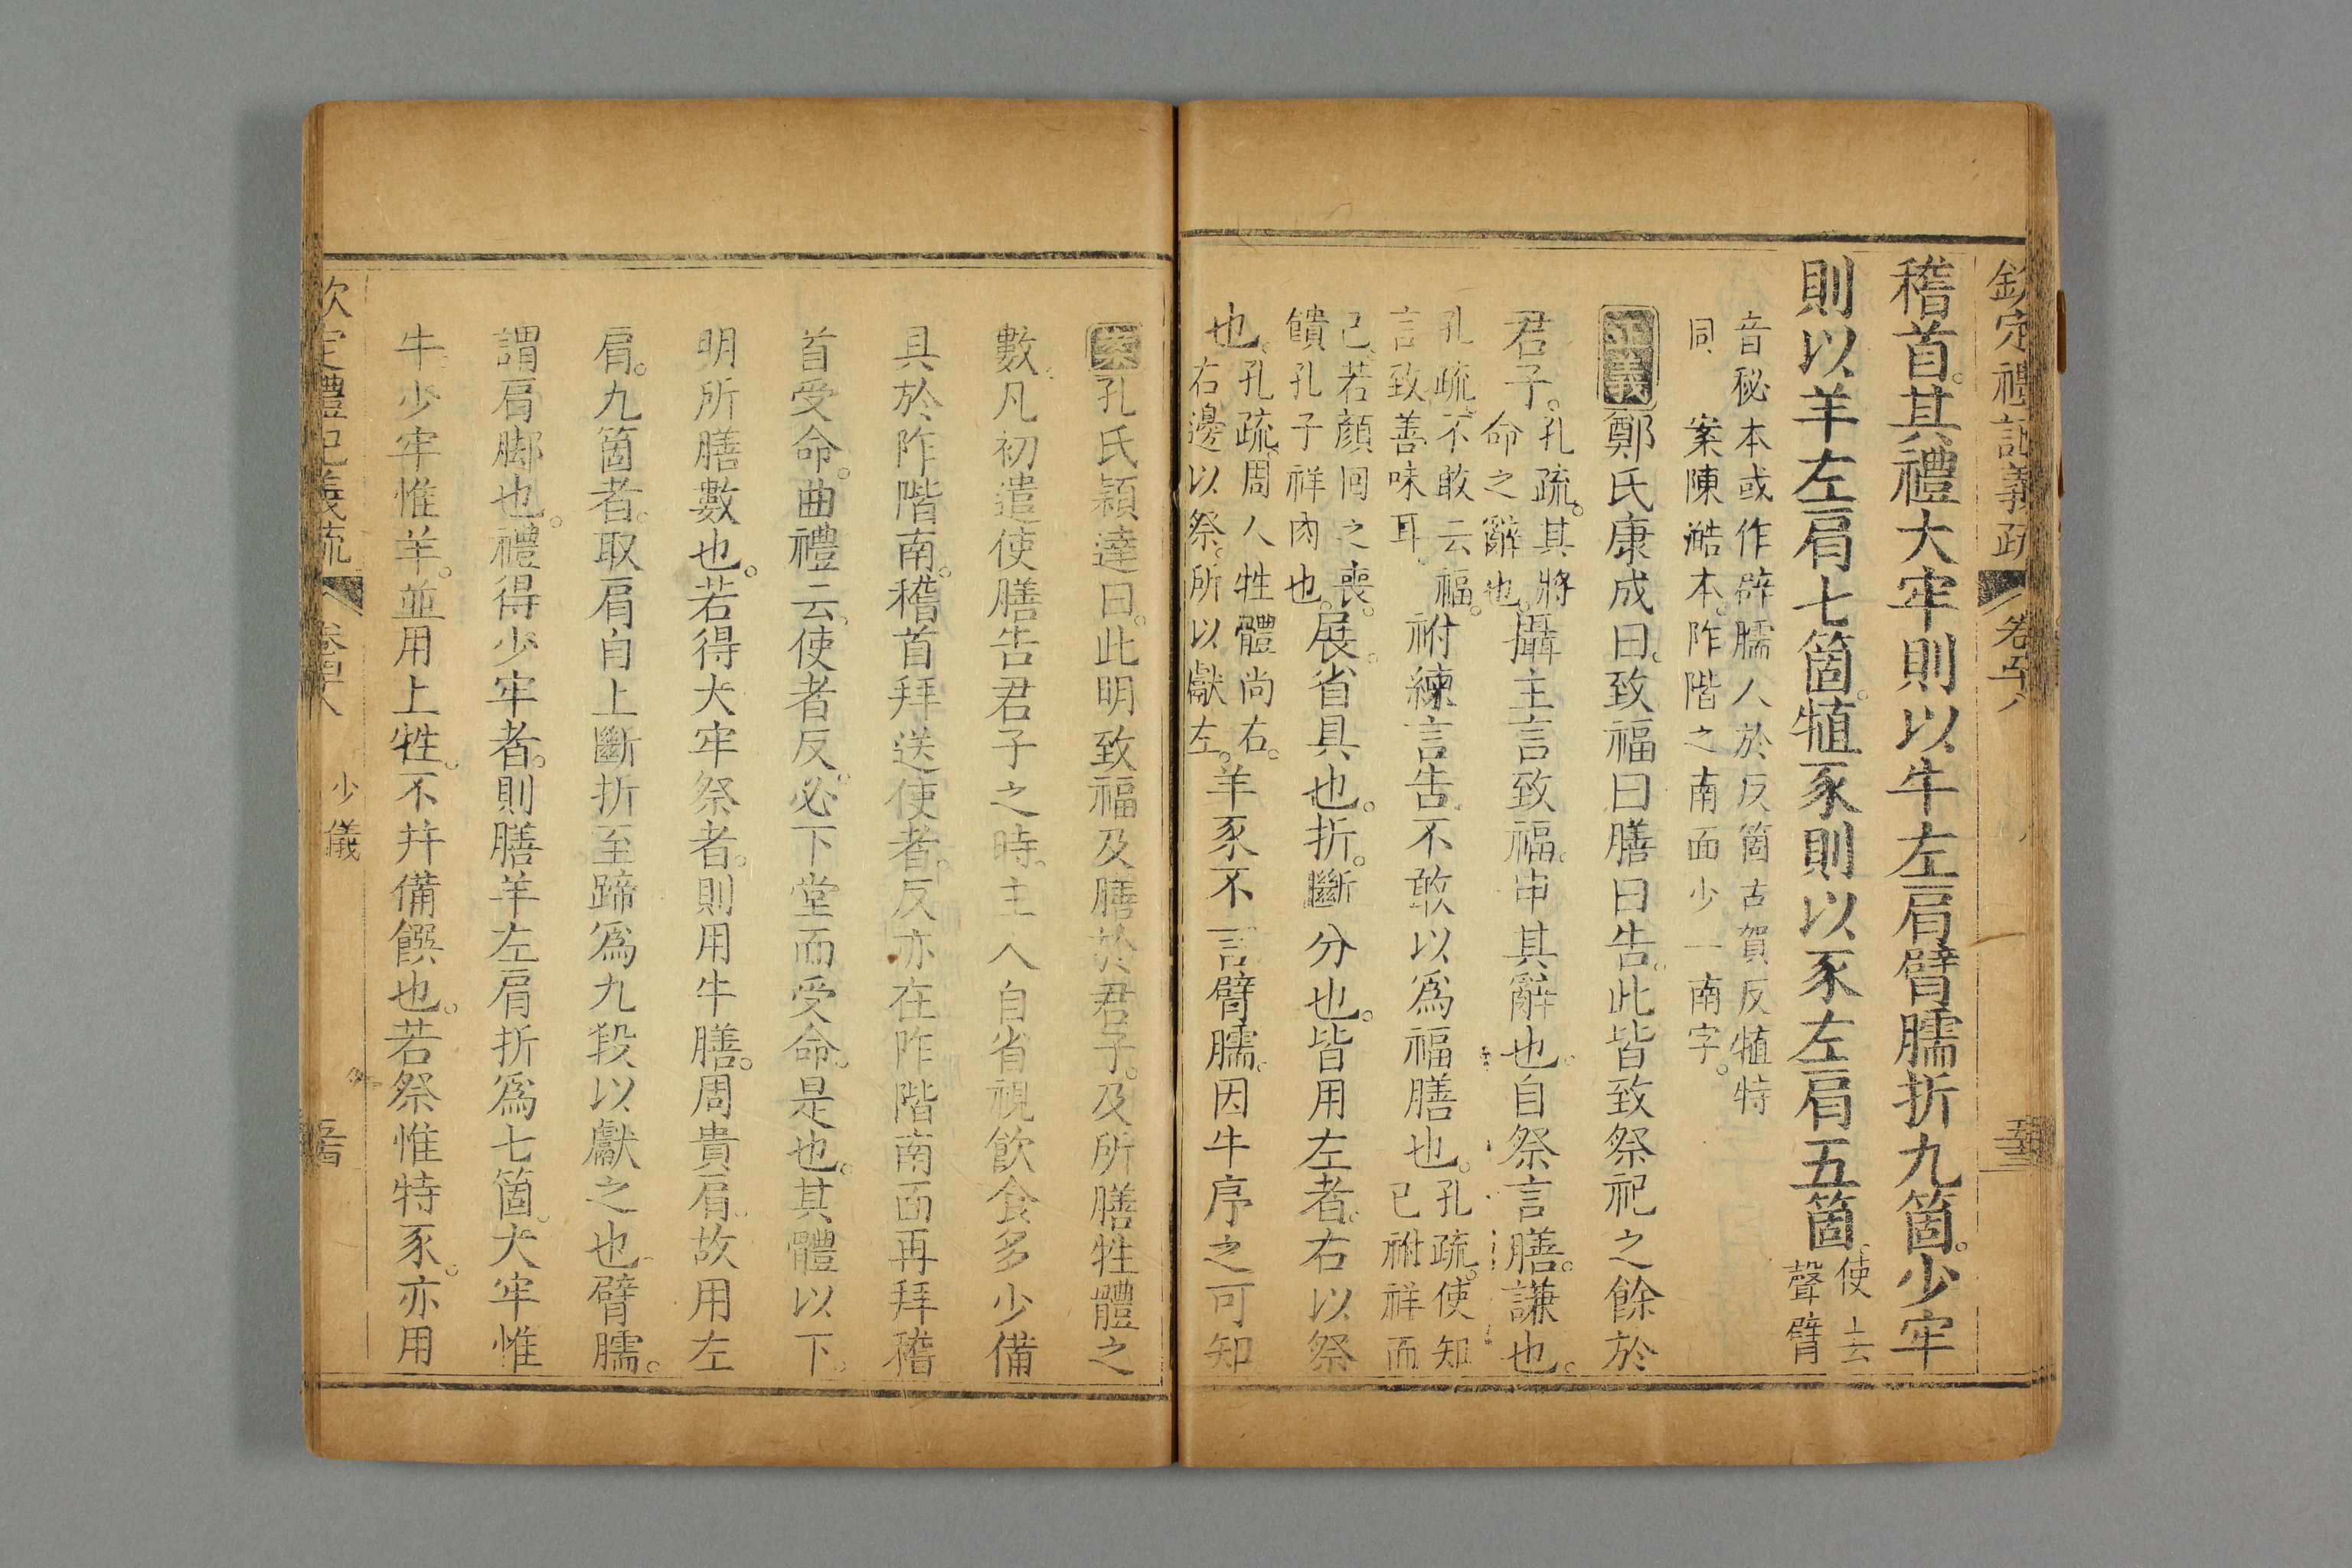 欽定禮記義疏
稽首。其禮大牢則以牛左肩臂臑折九箇。少牢
則以羊左肩七箇。犆豕則以豕左肩五箇。使去
聲臂
音秘本或作辟臑人於反箇古賀反犆特
同 案陳澔本。阼階之南面少一南字。
正義鄭氏康成曰。致福曰膳曰告。此皆致祭祀之餘於
君子。孔疏。其將
命之辭也。攝主言致福。申其辭也。自祭言膳。謙也。
孔疏。不敢云福。
言致善味耳。祔練言告。不敢以為福膳也。孔疏。使知
已祔祥而
已。若顏回之喪。
饋孔子祥肉也。展。省具也。折。斷分也。皆用左者。右以祭
也。孔疏。周人牲體尚右。
右邊以祭。所以獻左。羊豕不言臂臑。因牛序之可知
孔氏穎達曰。此明致福及膳於君子。及所膳牲體之
數。凡初遣使膳告君子之時。主人自省視飲食多少備
具於阼階南。稽首拜送使者。反亦在阼階南面再拜稽
首受命。曲禮云。使者反。必下堂而受命。是也。其體以下。
明所膳數也。若得大牢祭者。則用牛膳。周貴肩。故用左
肩。九箇者。取肩自上斷折至蹄為九段以獻之也。臂臑。
謂肩腳也。禮得少牢者。則膳羊左肩折為七箇。大牢惟
牛。少牢惟羊。並用上牲。不并備饌也。若祭惟特豕。亦用
少儀